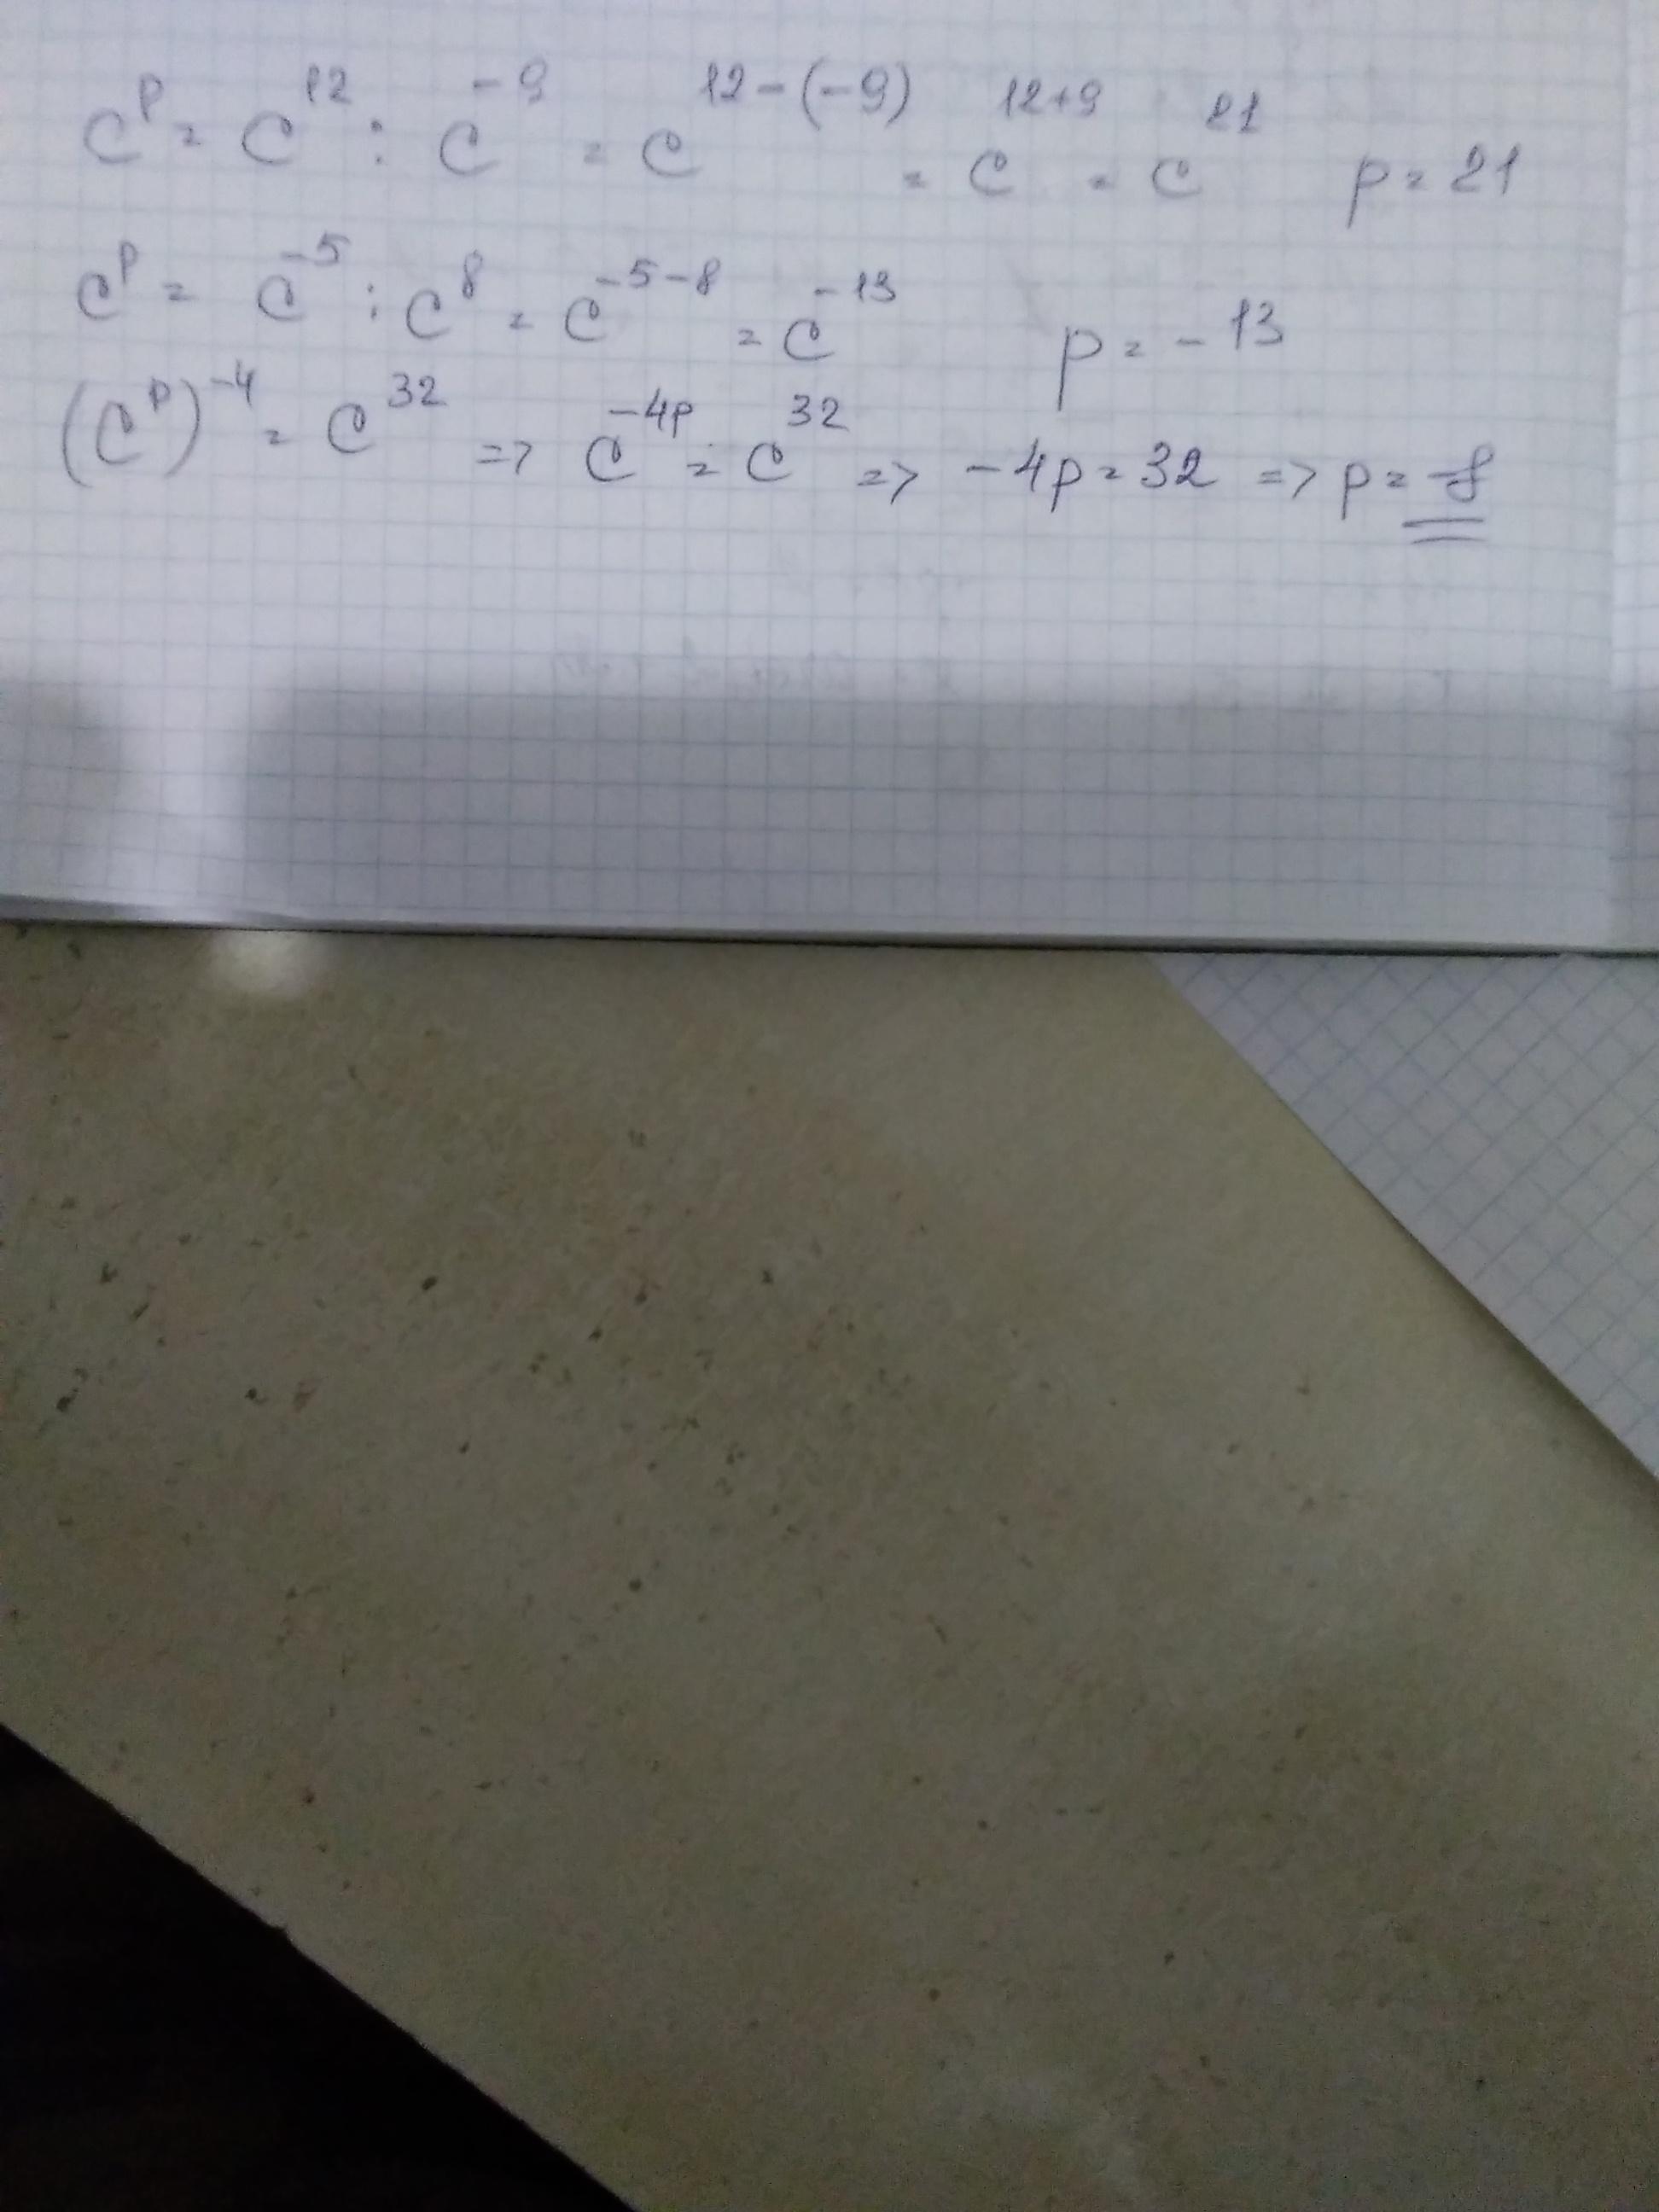 c^p = c^12 : c^-9 = c^12-(-9) = c^12+9 = c^21 p = 21
c^p = c^-5 : c^8 = c^-5-8 = c^-13 p = -13
(c^p)^-4 = c^32 => c^-4p = c^32 => -4p = 32 => p = -8